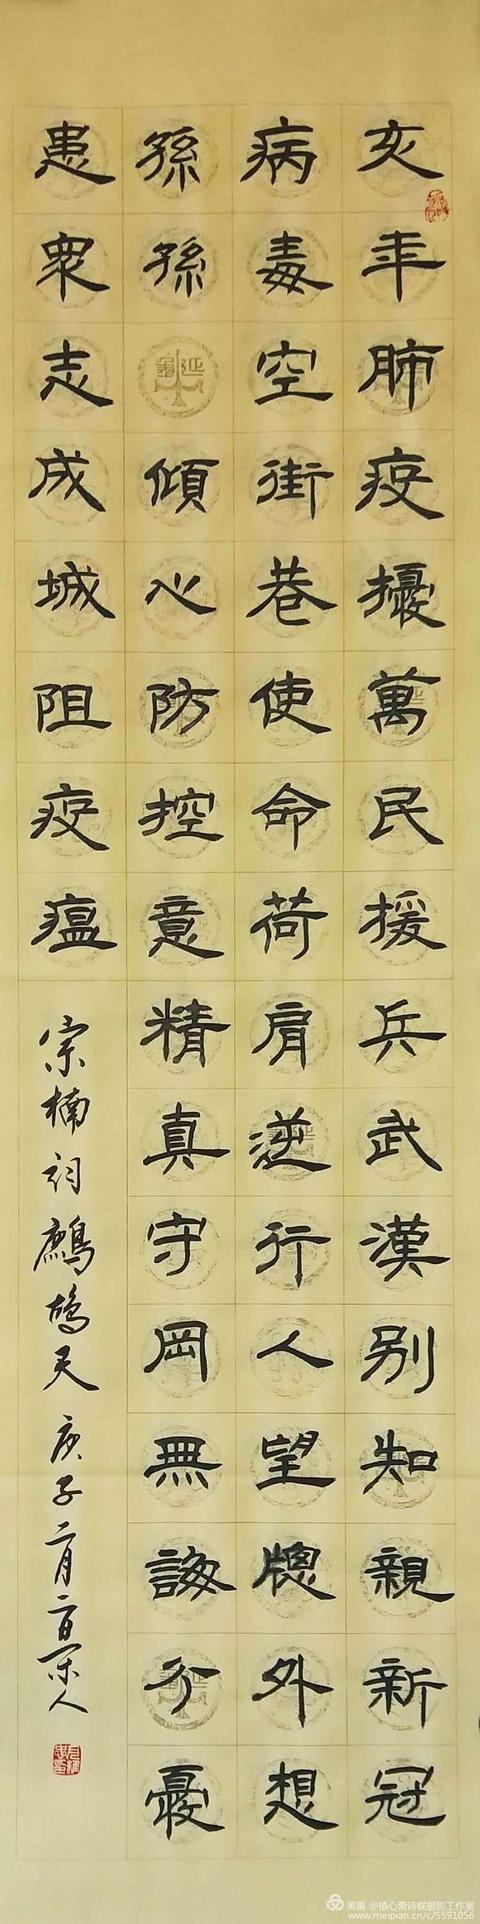 亥年肺疫擾萬民援兵武漢別知親新冠
病毒空街巷使命荷肩逆行人望牕外想
孫孫傾心防控意精真守岡無誨分憂
患衆志成城阻疫瘟
宗楠词鷓鴣天庚子二月
美篇 @植心斋诗联摄影工作室
www.meipian.cn/c/5591056